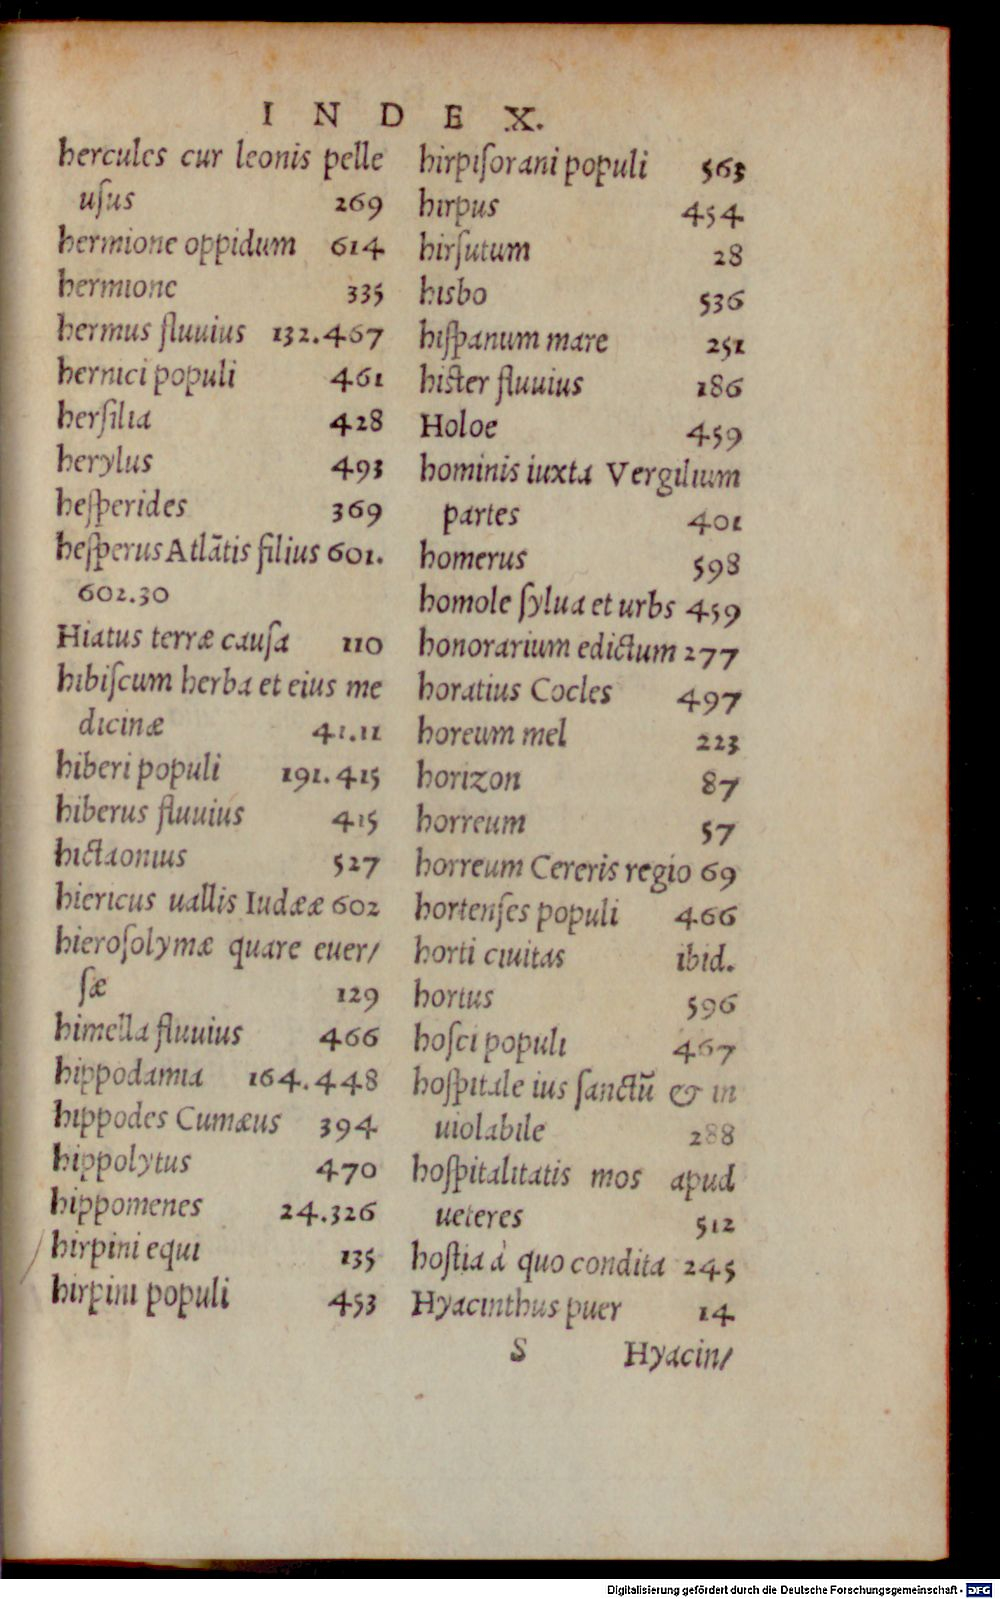 INDEX.
hercules cur leonis pelle
uſus 269
hermione oppidum 614
hermione 335
hermus fluuius 132.467
hernici populi 461
herſilia 428
herylus 493
heſperides 369
heſperus Atlãtis filius 601.
602.30
Hiatus terræ cauſa 110
hibiſcum herba et eius me
dicinæ 41.11
hiberi populi 191.415
hiberus fluuius 415
hictaonius 527
hiericus uallis Iudææ 602
hieroſolymæ quare euer/
ſæ 129
himella fluuius 466
hippodamia 164.448
hippodes Cumæus 394
hippolytus 470
hippomenes 24.326
hirpini equi 135
hirpini populi 453
hirpiſorani populi 563
hirpus 454
hirſutum 28
hisbo 536
hiſpanum mare 251
hister fluuius 186
Holoe 459
hominis iuxta Vergilium
partes 401
homerus 598
homole ſylua et urbs 459
honorarium edictum 277
horatius Cocles 497
horeum mel 223
horizon 87
horreum 57
horreum Cereris regio 69
hortenſes populi 466
horti ciuitas ibid.
hortus 596
hoſci populi 467
hoſpitale ius ſanctũ & in
uiolabile 288
hoſpitalitatis mos apud
ueteres 512
hoſtia à quo condita 245
Hyacinthus puer 14
S Hyacin/
Digitalisierung gefördert durch die Deutsche Forschungsgemeinschaft - DFG